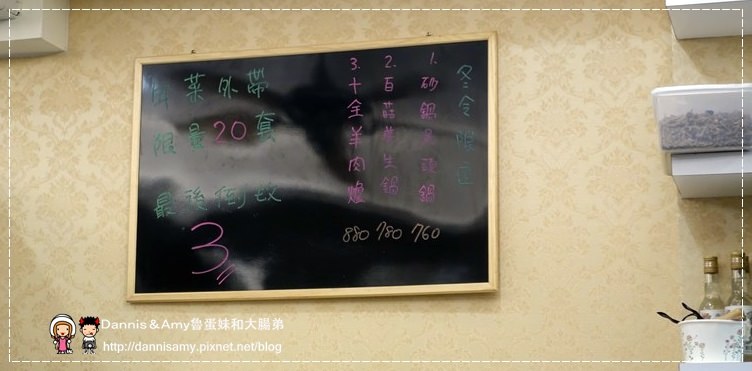 冬令限定
1.砂鍋魚頭鍋
2.百菇養生鍋
3.十全羊肉爐
880 780 760
年菜外帶
限量20套
最後倒數
3
Dannis & Amy魯蛋妹和大腸弟
http://dannisamy.pixnet.net/blog